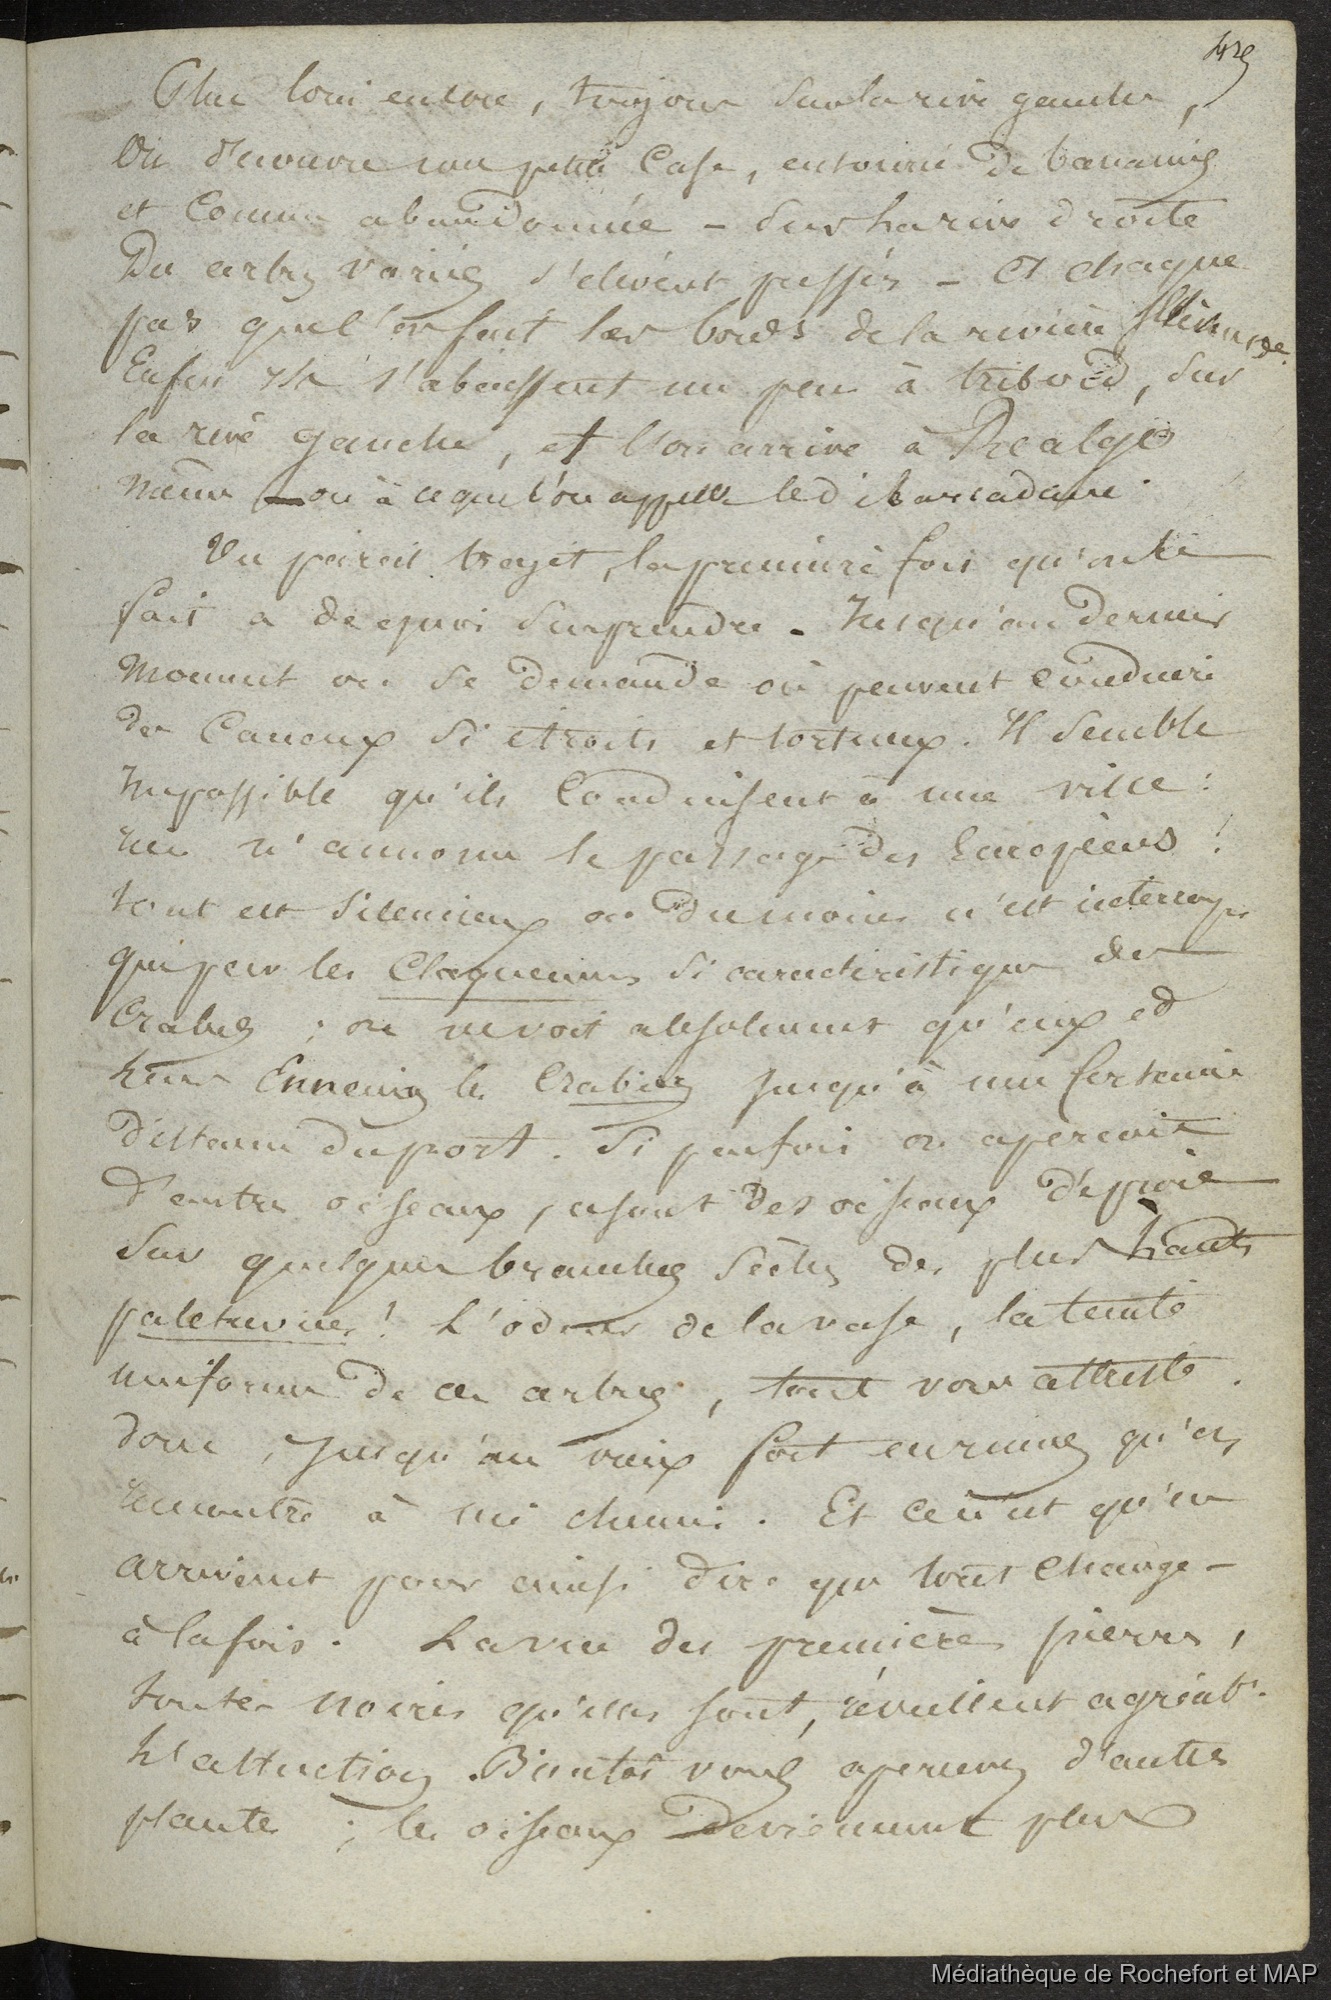 429
Plus loin encore, toujours sur la rive gauche,
On découvre une petite Case, entourée de bananiers
et Comme abandonnée – sur la rive droite
Des arbres variés s'élèvent pressés – Et chaque
pas que l'on fait les bords de la rivière
Enfin ils s'abaissent un peu à tribord, sur
la rive gauche, et l'on arrive à Realejo
même – ou à ce que l'on appelle le débarcadaire.
Un pareil trajet, la première fois qu'on le
fait a de quoi surprendre. Jusqu'au dernier
Moment on se demande où peuvent conduire
des Canaux si étroits et tortueux. Il semble
Impossible qu'ils Conduisent à une ville :
rien n'annonce le passage des Européens !
tout est silencieux ou du moins n'est interrompu
que par les Claquemens si caractéristiques des
Crabes ; on ne voit absolument qu'eux et
leurs Ennemis les Crabiers jusqu'à une certaine
distance du port. Si parfois on aperçoit
d'autres oiseaux, ce sont des oiseaux de proie
sur quelques branches sèches des plus hauts
paletuviers ! L'odeur de la vase, la teinte
uniforme de ces arbres, tout vous attriste
donc, jusqu'au vieux fort en ruines qu'on
rencontre à mi chemin. Et ce n'est qu'en
arrivant pour ainsi dire que tout change –
à la fois. La vue des premières pierres,
toutes noires qu'elles sont, réveillent agréabt.
L'attention. Bientôt vous apercevez d'autres
plantes ; les oiseaux deviennent plus
Médiathèque de Rochefort et MAP